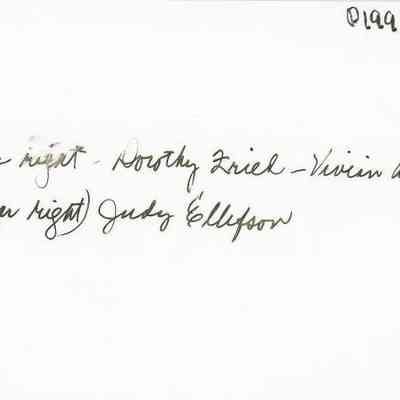 P199
right - Dorothy Friel - Vivian
right) Judy Ellefson